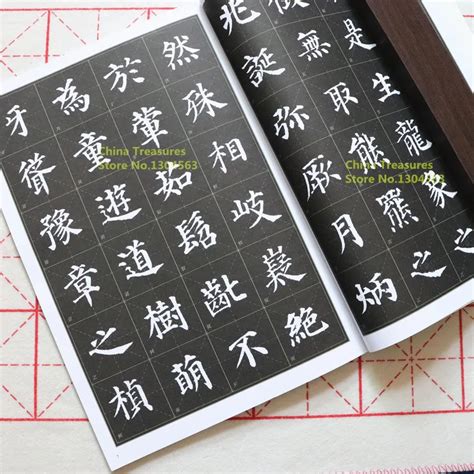 是生龍象之
無取熊羆之
兆誕彌厥月炳
然殊相岐嶷絕
於葷茹髫齔不
為童遊道樹萌
牙聳豫章之楨
China Treasures
Store No.1304563
China Treasures
Store No.1304563